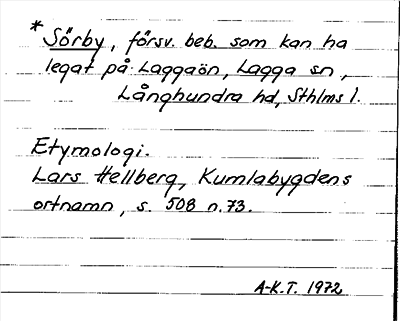 *Sörby, försv. beb. som kan ha
legat på Laggaön, Lagga sn,
Långhundra hd, Sthlms l.
Etymologi.
Lars Hellberg, Kumlabygdens
ortnamn, s. 508 n. 73.
A-K.T. 1972